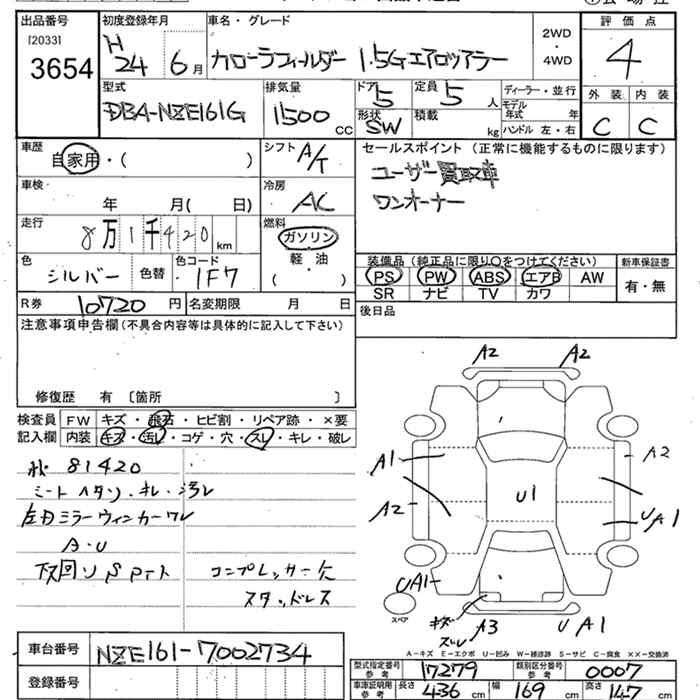 出品番号 初度登録年月 車名・グレード 2WD・4WD 評価点
[2033]
3654 H24 6月 カローラフィールダー 1.5Gエアロツアラー 4
型式 排気量 ドア 5 定員 5人 ディーラー・並行 外装 内装
DBA-NZE161G 1500cc 形状 SW 積載 kg モデル年式 年 C C
ハンドル 左・右
車歴 自家用・( ) シフト A/T セールスポイント (正常に機能するものに限ります)
ユーザー買取車
車検 年 月( 日) 冷房 AC ワンオーナー
走行 8万1千420km 燃料 ガソリン
軽油
・
( )
色 シルバー 色替 色コード 1F7
装備品 (純正品に限り○をつけてください) 新車保証書
PS PW ABS エアB AW 有・無
SR ナビ TV カワ
R券 10720円 名変期限 月 日 後日品
注意事項申告欄(不具合内容等は具体的に記入して下さい)
修復歴 有 〔箇所 〕
検査員 FW キズ・飛石・ヒビ割・リペア跡・×要
記入欄 内装 キズ・汚レ・コゲ・穴・スレ・キレ・破レ
81420
シートヘタリ・キレ・汚レ
左右ミラーウィンカーワレ
A・U
下回り
コンプレッサー欠
スタッドレス
A2 A2
A1 A2
A2 U1 UA1
UA1
スペア
キズ
スレ A3 UA1
A-キズ E-エクボ U-凹み W-補修跡 S-サビ C-腐食 ××-交換済
車台番号 NZE161-7002734
型式指定番号 参考 17279 類別区分番号 参考 0007
登録番号
車庫証明用 参考 長さ 436cm 幅 169cm 高さ 147cm